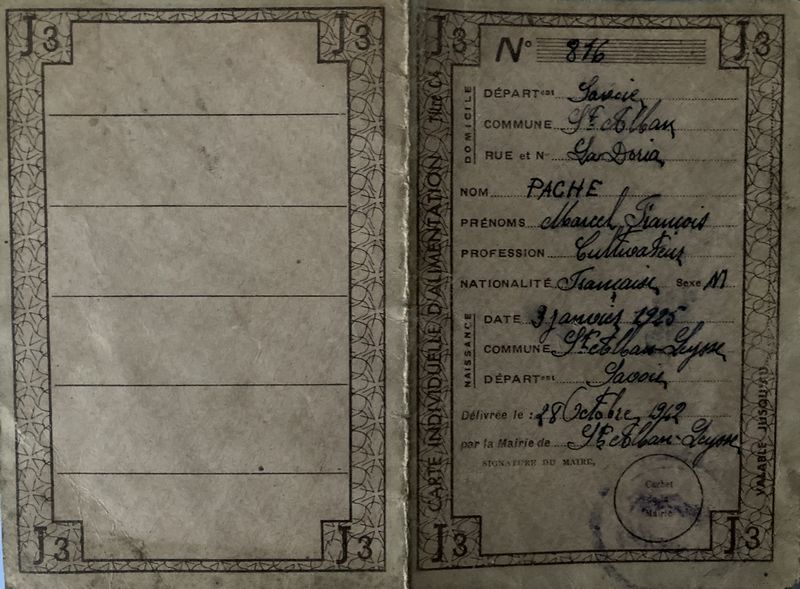 J3 J3
J3 J3
J3 J3
CARTE INDIVIDUELLE D'ALIMENTATION Titre C4
N° 816
DOMICILE
DÉPARTent Savoie
COMMUNE St Alban
RUE et N° La Doria
NOM PACHE
PRÉNOMS Marcel, François
PROFESSION Cultivateur
NATIONALITÉ Française Sexe M
NAISSANCE
DATE 3 janvier 1925
COMMUNE St Alban-Leysse
DÉPARTent Savoie
Délivrée le : 28 Octobre 1942
par la Mairie de St Alban-Leysse
SIGNATURE DU MAIRE,
Cachet
de la
Mairie
VALABLE JUSQU'AU
J3 J3